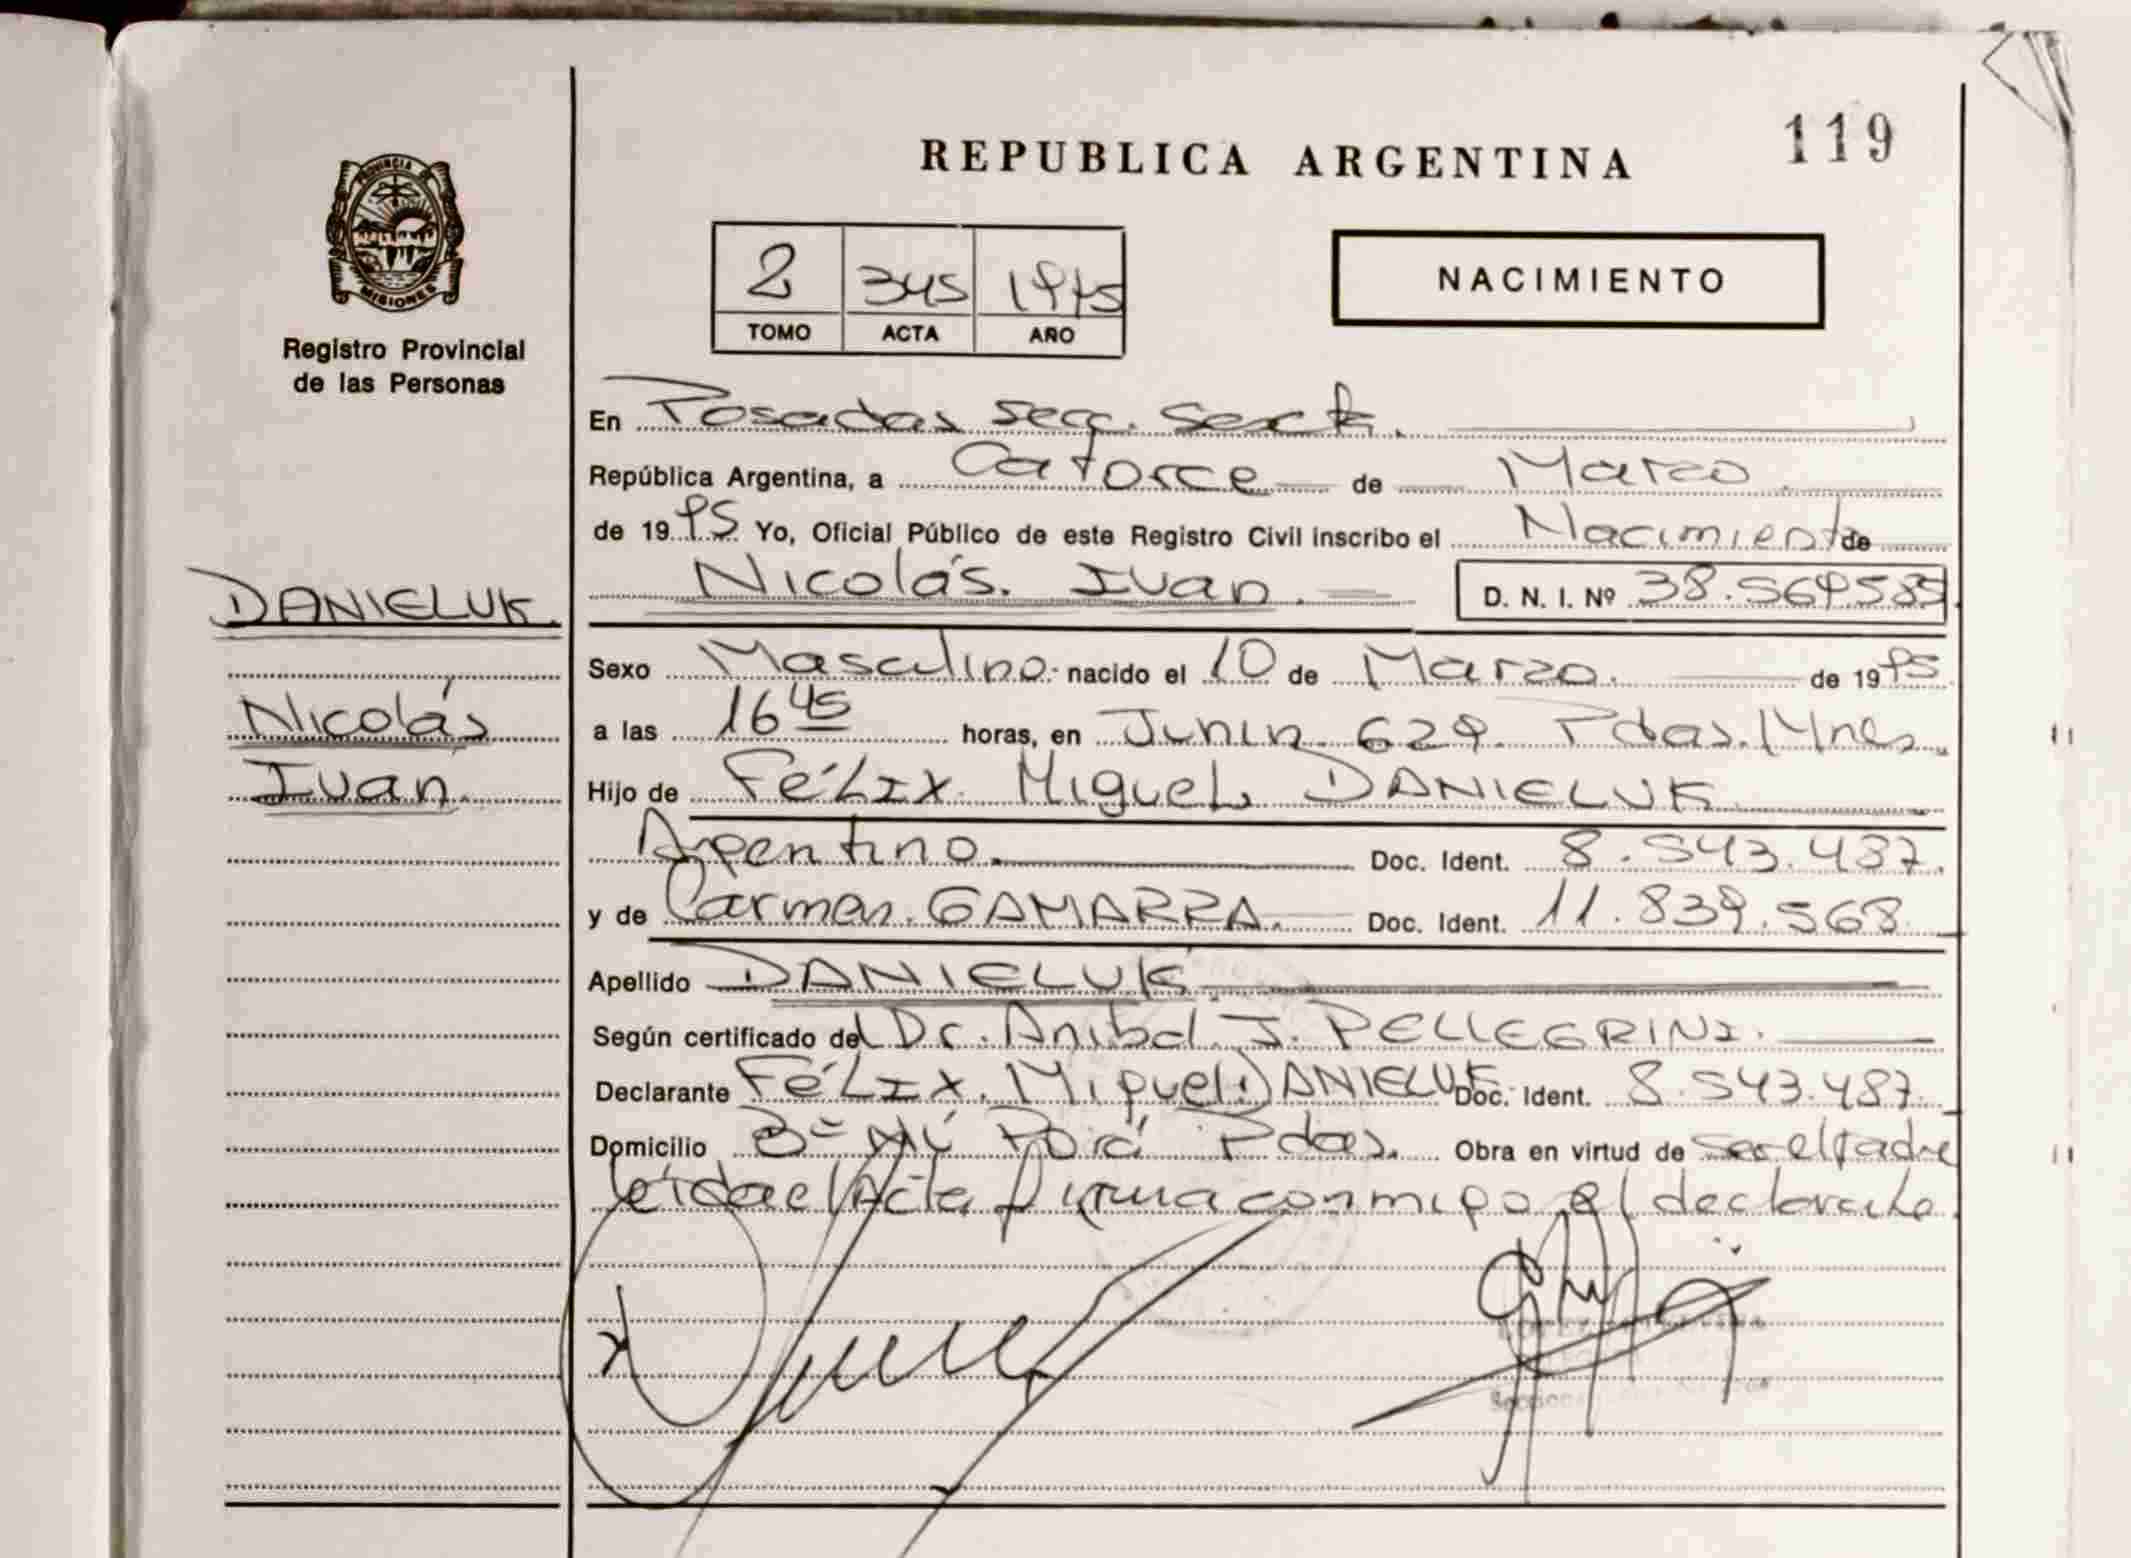 119
REPUBLICA ARGENTINA
PROVINCIA DE
MISIONES
Registro Provincial
de las Personas
2 345 1995
TOMO ACTA AÑO
NACIMIENTO
En Posadas secc. Sexta.
República Argentina, a Catorce de Marzo
de 1995 Yo, Oficial Público de este Registro Civil inscribo el Nacimiento de
Nicolás. Ivan. D. N. I. Nº 38.569585
DANIELUK.
Nicolás
Ivan.
Sexo Masculino. nacido el 10 de Marzo. de 1995
a las 16 45 horas, en Junin. 629. Pdas. Mnes.
Hijo de FéLIX. MigueL DANIELUK
Argentino. Doc. Ident. 8.543.487.
y de Carmen. GAMARRA. Doc. Ident. 11.839.568.
Apellido DANIELUK.
Según certificado del Dr. Anibal J. PELLEGRINI.
Declarante FéLIX. Miguel DANIELUK Doc. Ident. 8.543.487.
Domicilio Bº Mí Porá Pdas. Obra en virtud de ser el Padre
leída el Acta firma conmigo el declarante.